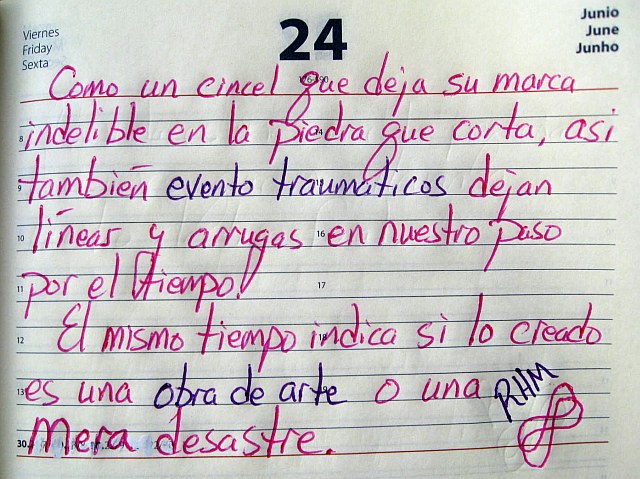 Viernes
Friday
Sexta
24
Junio
June
Junho
Como un cincel que deja su marca
8 indelible en la piedra que corta, asi
9 también evento traumáticos dejan
10 líneas y arrugas 16 en nuestro paso
11 por el tiempo! 17
12 El mismo tiempo indica si lo creado
13 es una obra de arte o una RHM
30 mera desastre.